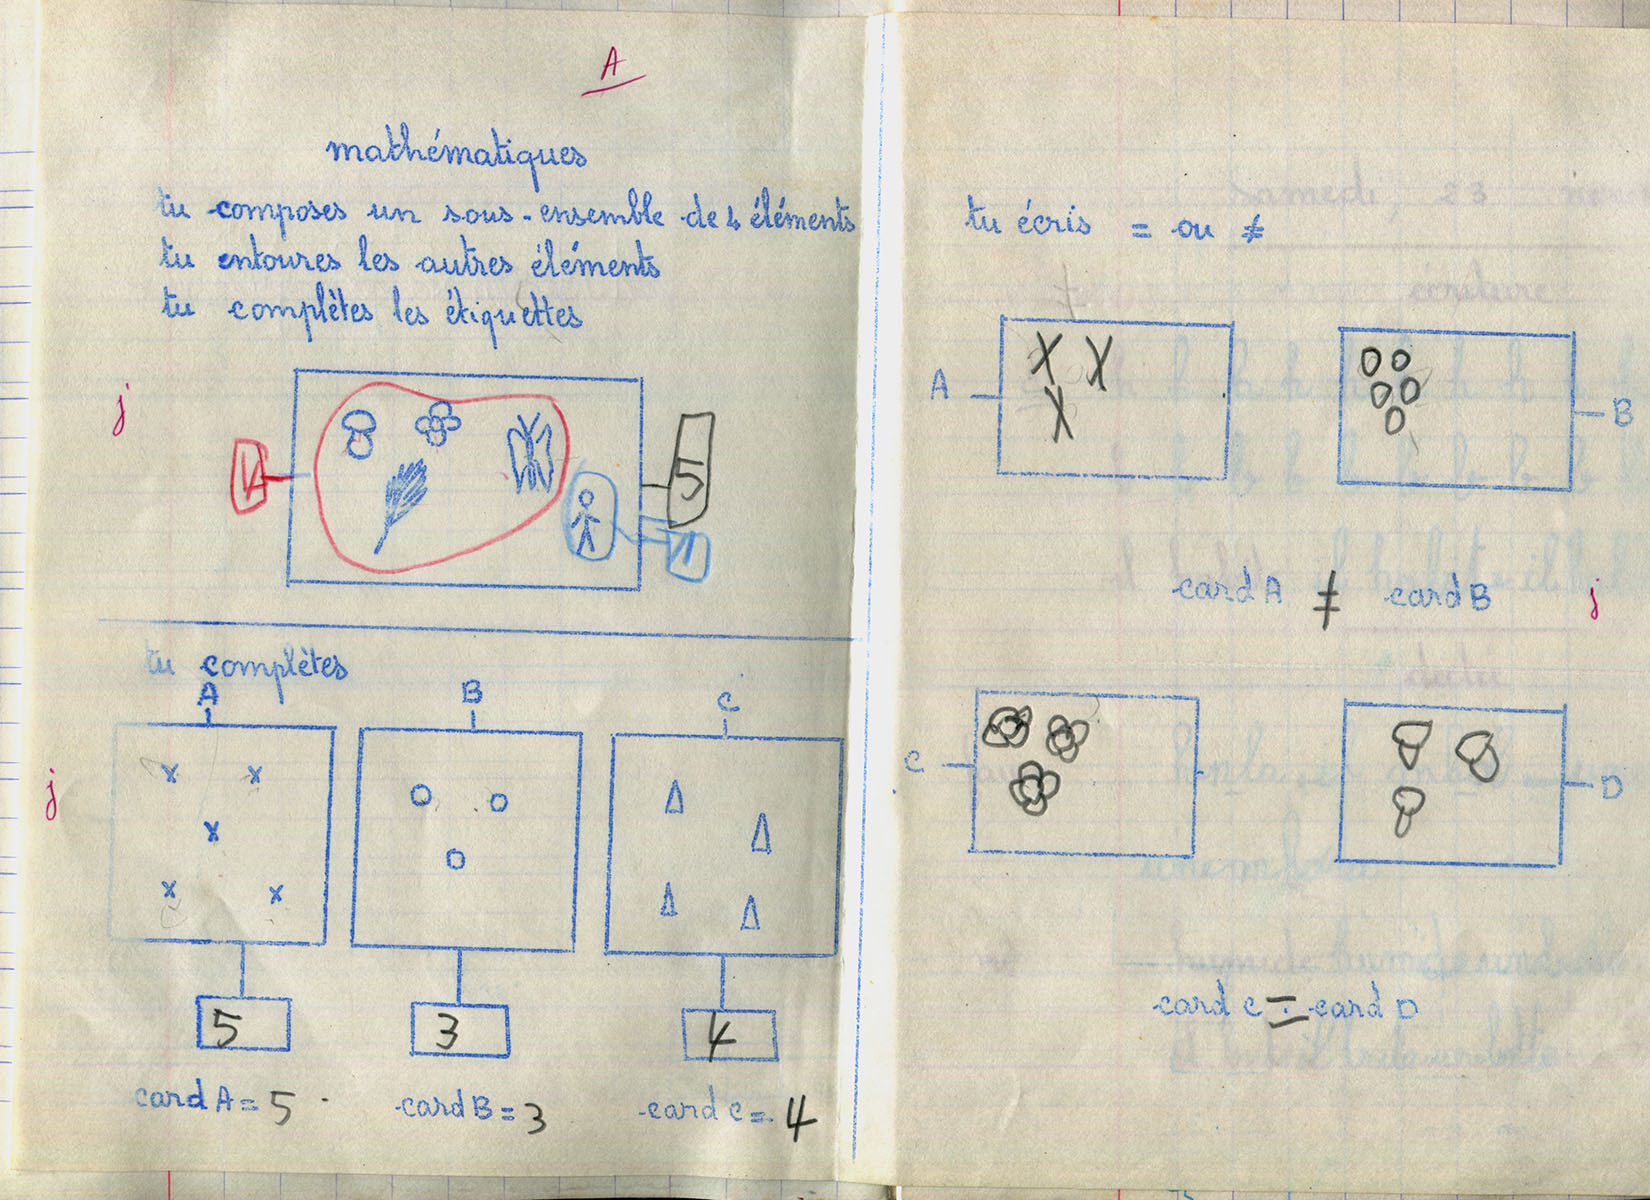 A
mathématiques
tu composes un sous-ensemble de 4 éléments
tu entoures les autres éléments
tu complètes les étiquettes
j
4
5
1
tu complètes
A B C
j
5 3 4
card A = 5 card B = 3 card C = 4
tu écris = ou ≠
A B
card A ≠ card B
j
C D
card C = card D
Samedi, 23
écriture
dictée